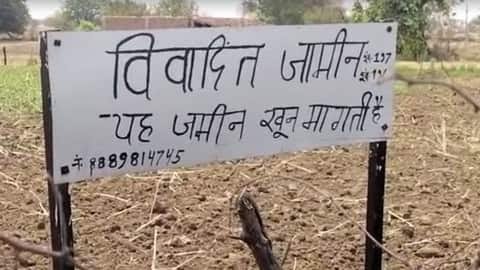 विवादित जामीन नं. 197
यह जमीन खून मागती है
नं 9889814745